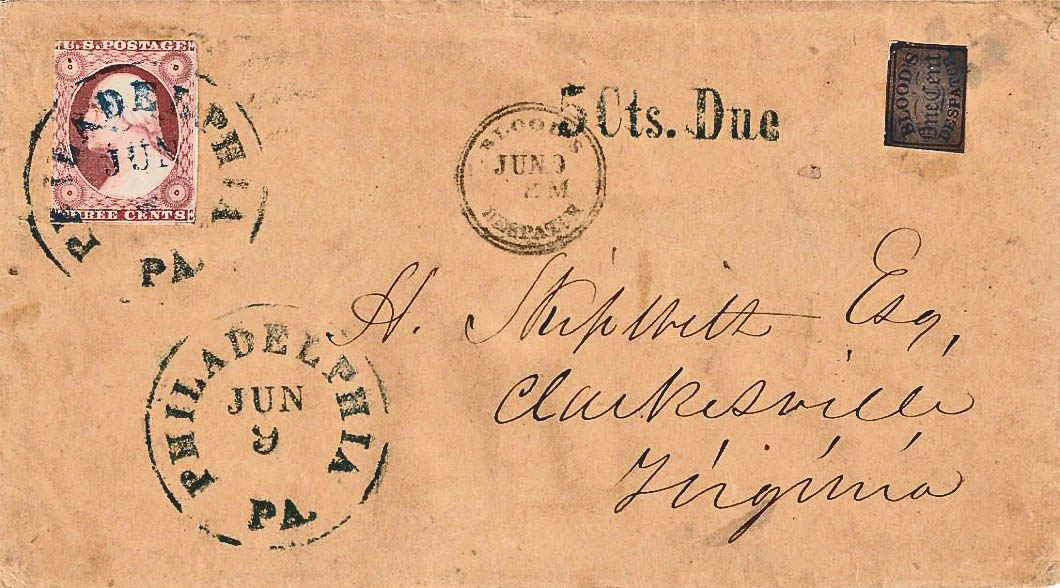 U.S. POSTAGE
THREE CENTS
PHILADELPHIA
JUN
PA.
BLOOD'S
JUN 9
DESPATCH
5 Cts. Due
BLOOD'S
One Cent
DESPATCH
H. Skipwith Esq,
Clarkesville
Virginia
PHILADELPHIA
JUN
9
PA.